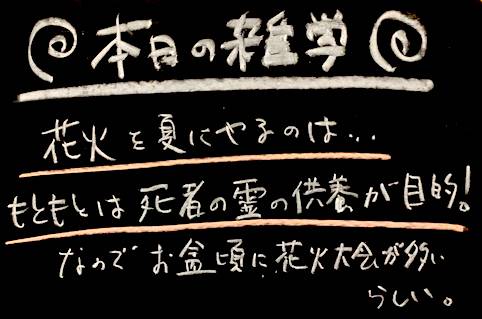 本日の雑学
花火を夏にやるのは...
もともとは死者の霊の供養が目的!
なのでお盆頃に花火大会が多い
らしい。